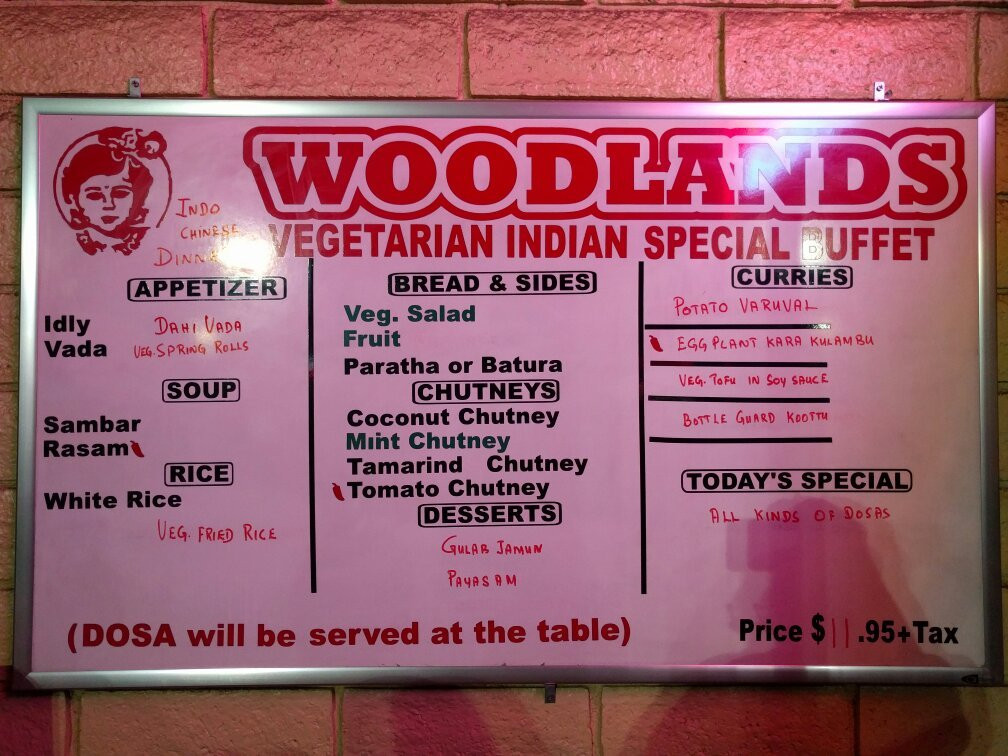 WOODLANDS
VEGETARIAN INDIAN SPECIAL BUFFET
INDO
CHINESE
DINNER
APPETIZER
Idly
DAHI VADA
Vada
VEG. SPRING ROLLS
SOUP
Sambar
Rasam
RICE
White Rice
VEG. FRIED RICE
BREAD & SIDES
Veg. Salad
Fruit
Paratha or Batura
CHUTNEYS
Coconut Chutney
Mint Chutney
Tamarind Chutney
Tomato Chutney
DESSERTS
GULAB JAMUN
PAYASAM
CURRIES
POTATO VARUVAL
EGG PLANT KARA KULAMBU
VEG. TOFU IN SOY SAUCE
BOTTLE GUARD KOOTTU
TODAY'S SPECIAL
ALL KINDS OF DOSAS
(DOSA will be served at the table)
Price $11.95+Tax